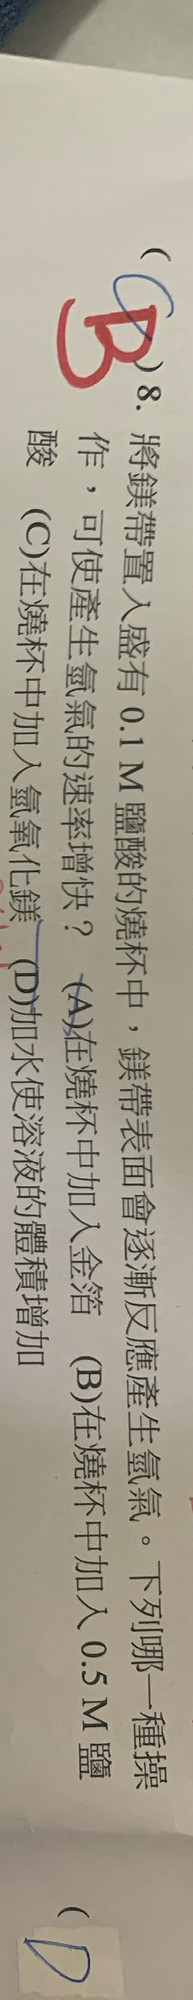 ( B ) 8. 將鎂帶置入盛有 0.1 M 鹽酸的燒杯中，鎂帶表面會逐漸反應產生氫氣。下列哪一種操
作，可使產生氫氣的速率增快？ (A)在燒杯中加入金箔 (B)在燒杯中加入 0.5 M 鹽
酸 (C)在燒杯中加入氫氧化鎂 (D)加水使溶液的體積增加
( D